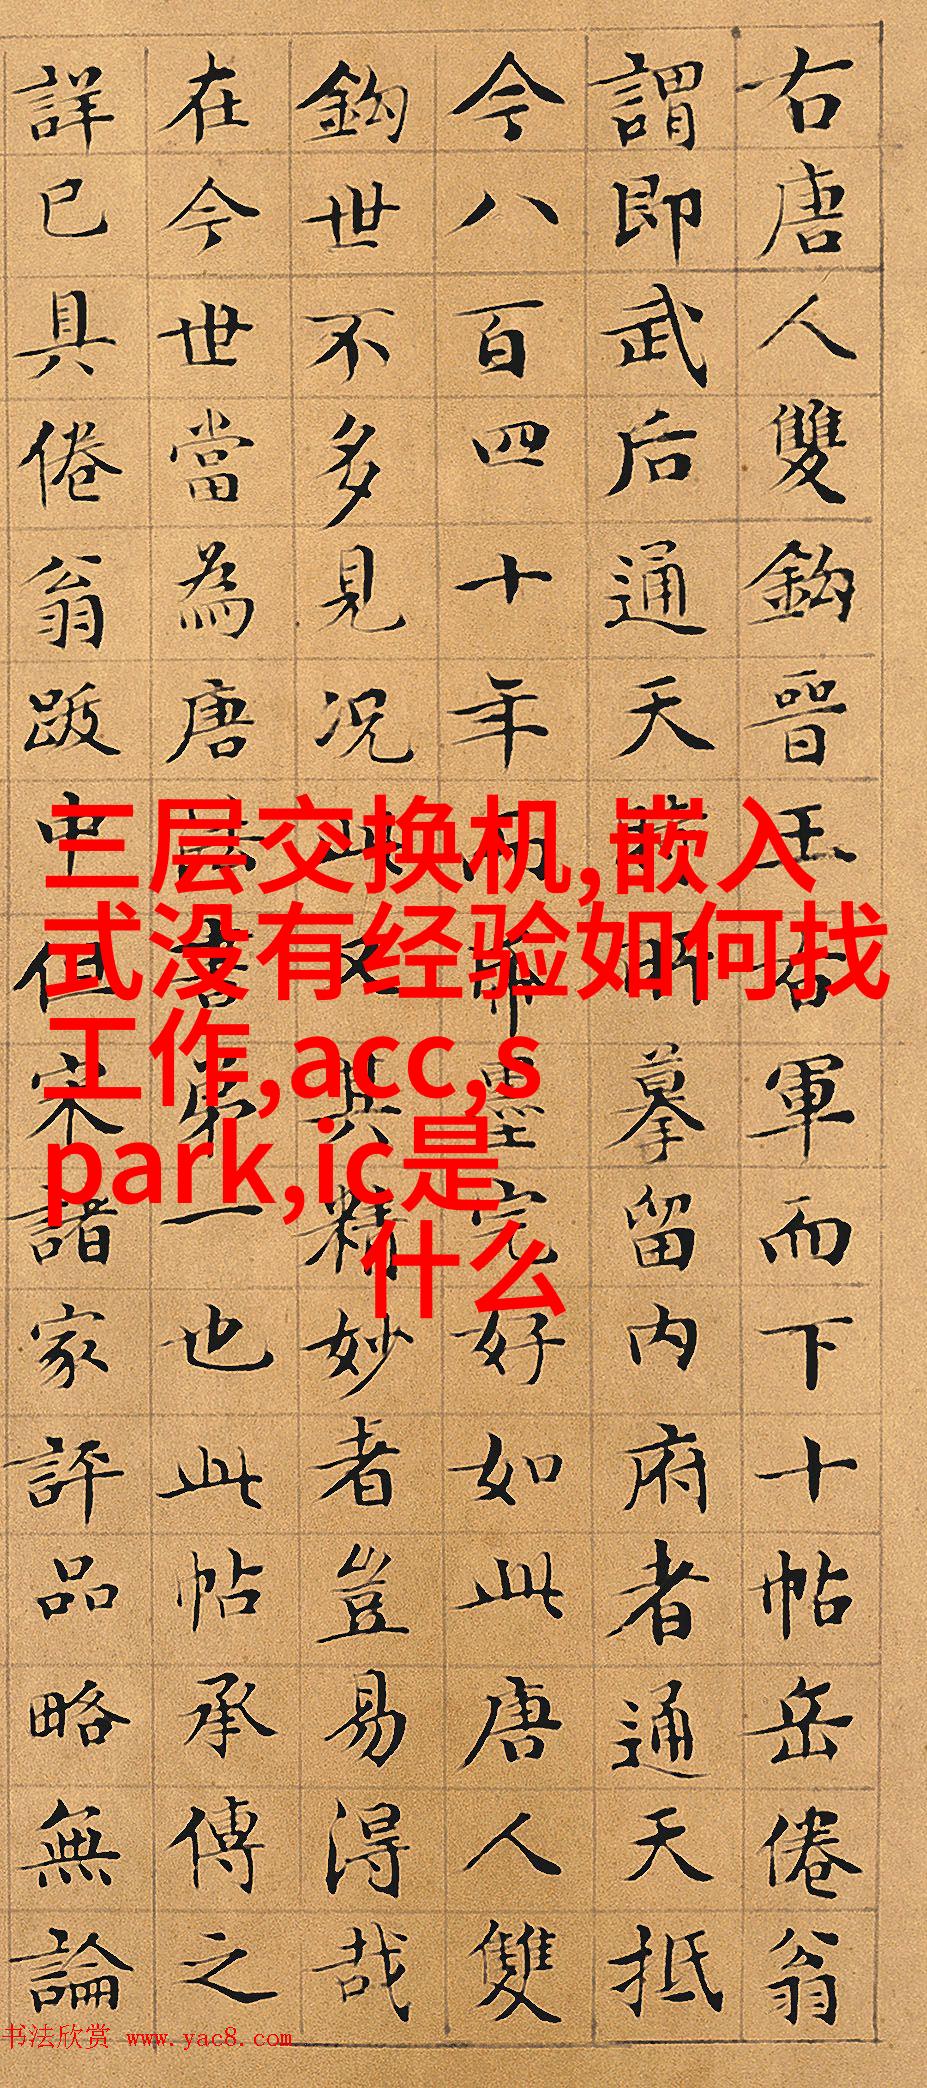 右唐人雙鈎晉王右軍而下十帖岳倦翁
謂即武后通天時所摹留内府者通天抵
今八百四十年而帋墨完好如此唐人雙
鈎世不多見况此又其精妙者豈易得哉
在今世當為唐法書第一也此帖承傳之
詳已具倦翁跋中但宋諸家評品略無論
三层交换机,嵌入
式没有经验如何找
工作,acc,s
park,ic是
什么
书法欣赏 www.yac8.com